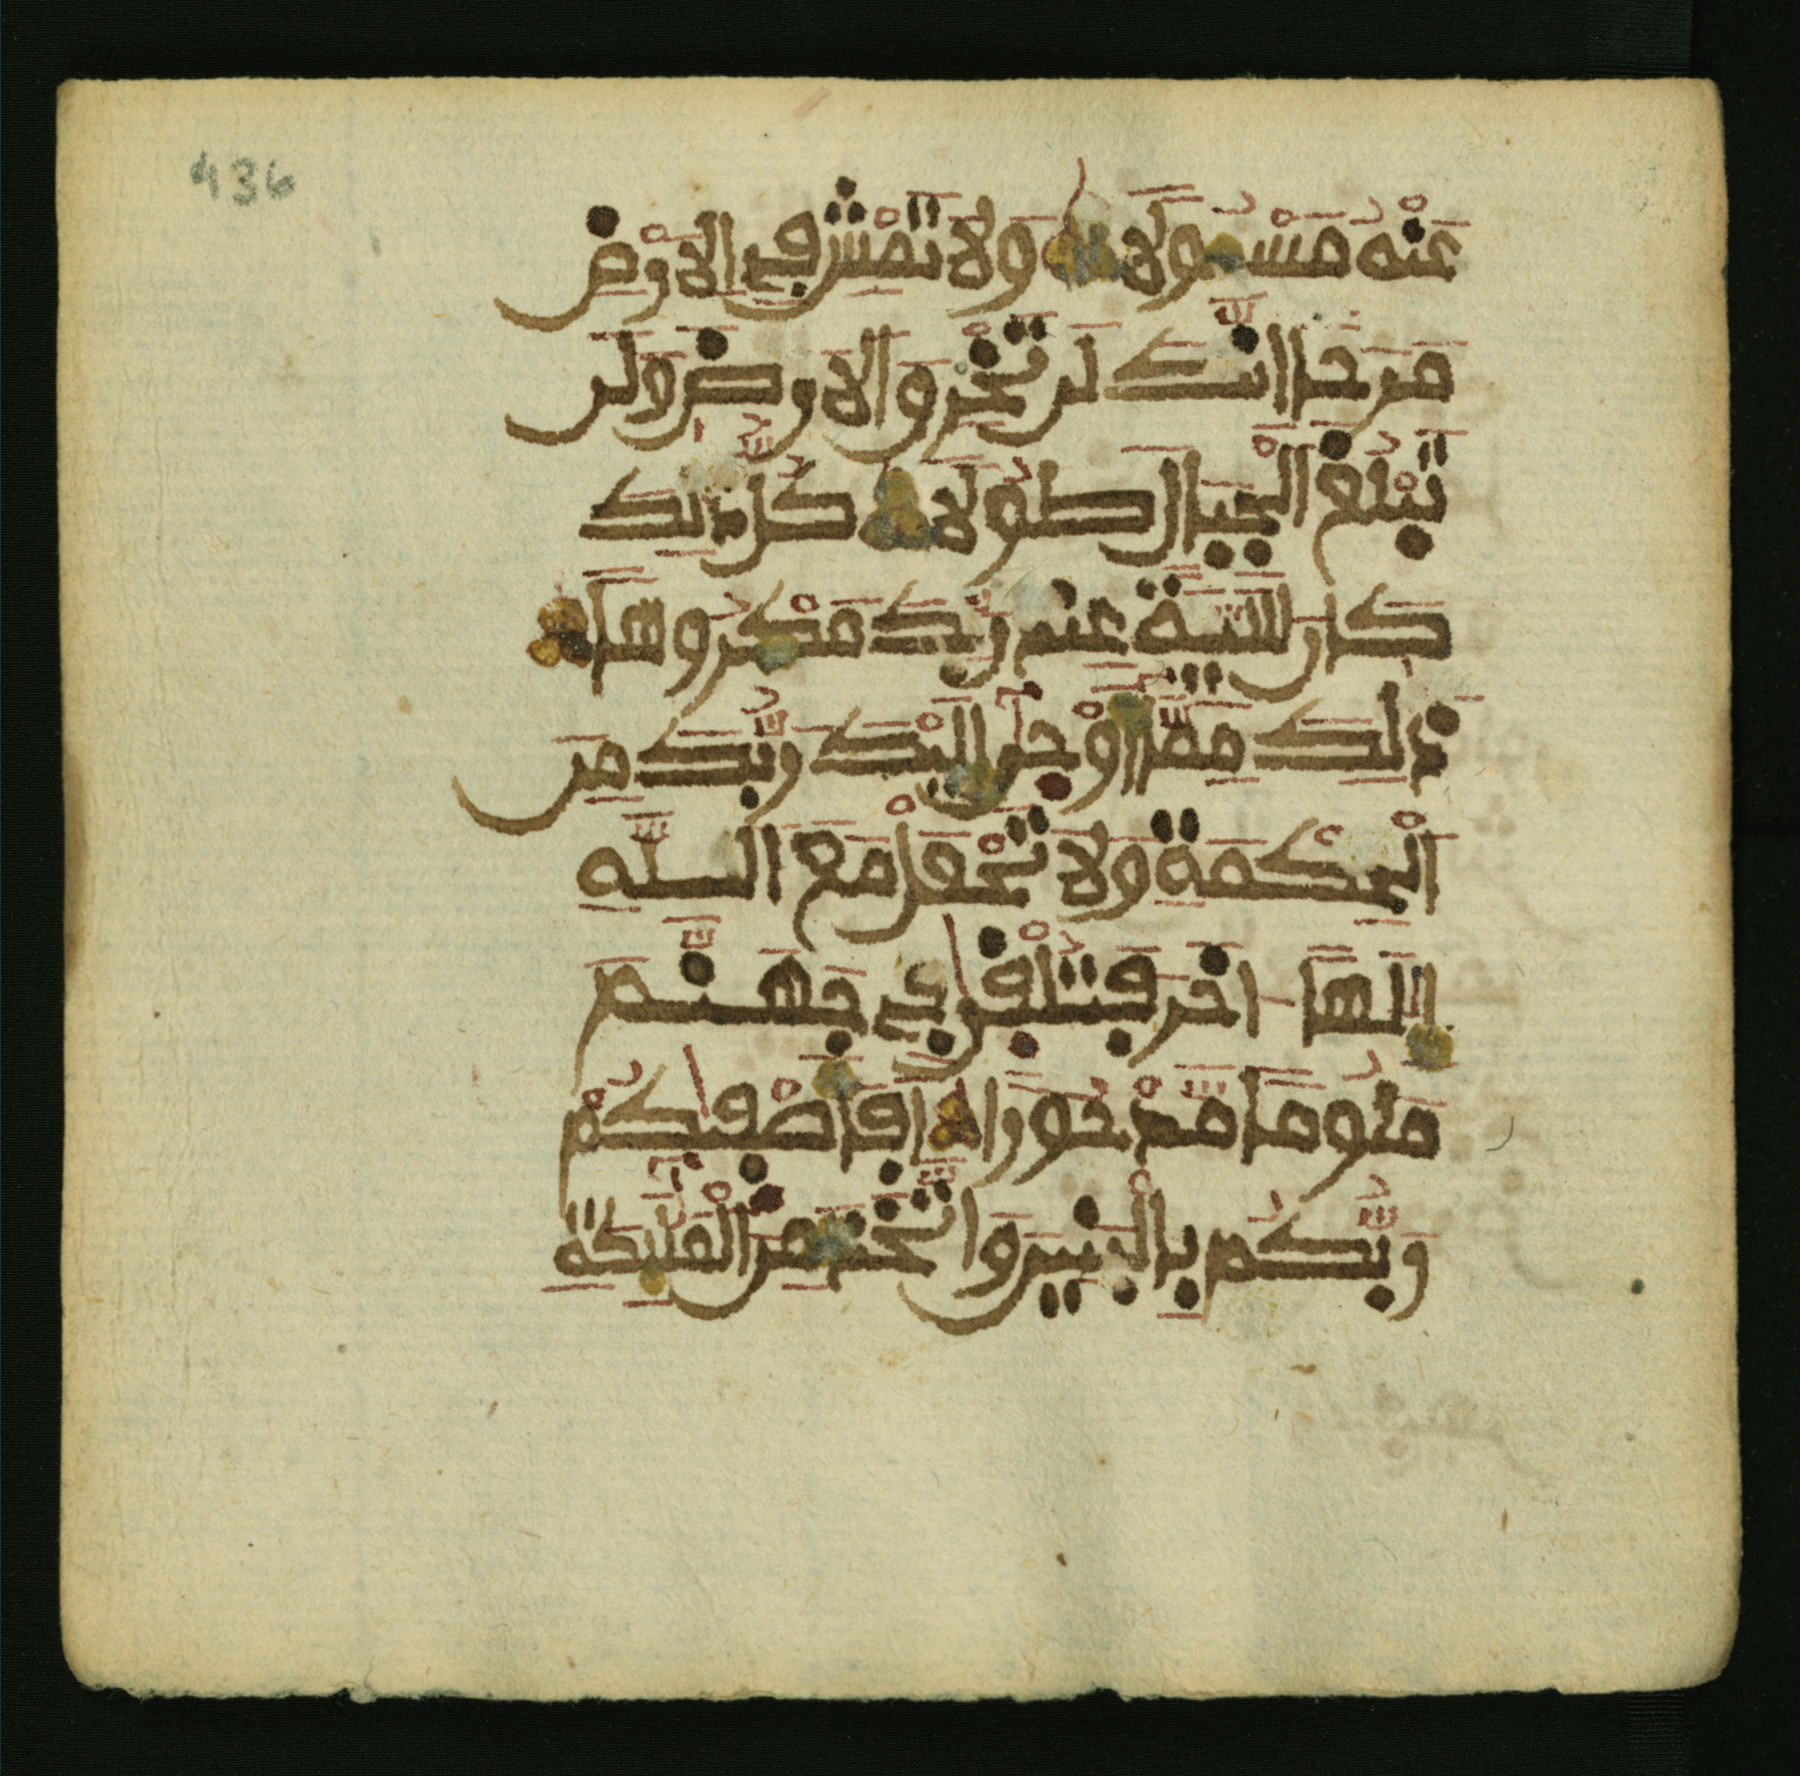 436
عَنْهُ مَسْـُٔولًا وَلَا تَمْشِ فِى الَارْضِ
مَرَحًا اِنَّكَ لَن تَخْرِقَ الَارْضَ وَلَن
تَبْلُغَ الْجِبَالَ طُولًا كُلُّ ذَٰلِكَ
كَانَ سَيِّئَةً عِندَ رَبِّكَ مَكْرُوهًا
ذَٰلِكَ مِمَّا أَوْحَىٰ إِلَيْكَ رَبُّكَ مِنَ
الْحِكْمَةِ وَلَا تَجْعَلْ مَعَ اللَّهِ
إِلَٰهًا اخَرَ فَتُلْقَىٰ فِى جَهَنَّمَ
مَلُومًا مَّدْحُورًا أَفَأَصْفَىٰكُمْ
رَبُّكُم بِالْبَنِينَ وَاتَّخَذَ مِنَ الْمَلَٰٓئِكَةِ